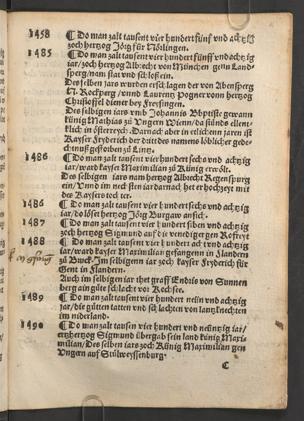 1458 ¶ Do man zalt tausent vier hundert fünf vnd achtzig
zoch hertzog Jörg für Nörlingen.
1485 ¶ Do man zalt tausent vier hundert fünff vnd achtzig
iar/ zoch hertzog Albrecht von München gein Land
sperg/ nam stat vnd schloß ein.
Des selben iars wurden erschlagen der von Abensperg
N. Rockperg/ vnnd Laurentz Pogner vonn hertzog
Christoffel diener bey Freysingen.
Des selbigen iars vmb Johannis Bbptiste gewann
künig Mathias zu Vngern Wienn/ da stünds ellent-
klich in österreych. Darnach aber in etlichenn iaren ist
Kayser Fryderich der dritt des namens löblicher gede
chtnuß gestorben zu Lintz.
1486 ¶ Do man zalt tausent vier hundert sechs vnd achtzig
iar/ ward kayser Maximilian zu Künig erwölt.
Des selbigen iars nam hertzog Albrecht Regenspurg
ein/ Vnnd im nechsten iar darnach het er hochzeyt mit
des Kaysers tochter.
1486 ¶ Do man zalt tausent vier hundert sechs vnd achtzig
iar/ do löset hertzog Jörg Burgaw an sich.
1487 ¶ Do man zalt tausent vier hundert siben vnd achtzig
zoch hertzog Sigmund auf die venediger gen Rofreyt
1488 ¶ Do man zalt tausent vier hundert acht vnd achtzig
iar/ ward kayser Maximilian gefangenn in Flandern
zu Bruck. Im selbigenn iar zoch kayser Fryderich für
Gent in Flandern.
Auch im selbigen iar thet graff Endris von Sunnen
berg ain güte schlacht vor Rochsee.
1489 ¶ Do man zalt tausent vier hundert neün vnd achtzig
iar/ die gütten tatten vnd schlachten von lantzknechten
im niderland.
1490 ¶ Do man zalt tausen vier hundert vnd neüntzig iar/
ertzhertzog Sigmund übergab sein land künig Maxi
milian/ Des selben iars zoch Künig Maximilian gen
Vngern auf Stülweyssenburg.
C